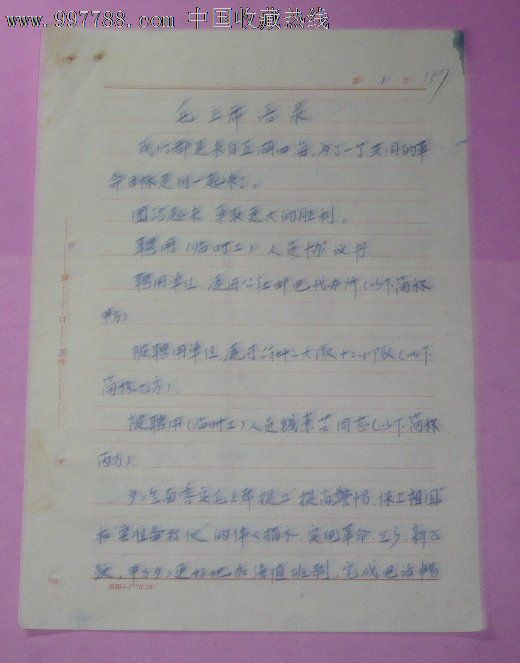 www.997788.com 中国收藏热线
第 1 页
137
毛主席语录
我们都是来自五湖四海，为了一个共同的革
命目标走到一起来了。
团结起来，争取更大的胜利。
聘用（临时工）人员协议书
聘用单位：公社邮电代办所（以下简称
甲方）
被聘用单位：大队十二小队（以下
简称乙方）.
被聘用（临时工）人员同志（以下简称
丙方）.
为了全面落实毛主席提出"提高警惕，保卫祖国"
和"要准备打仗"的伟大指示，实现革命、生产、新飞
跃，甲方为了更好地加强值班制，完成电话畅
装
订
线